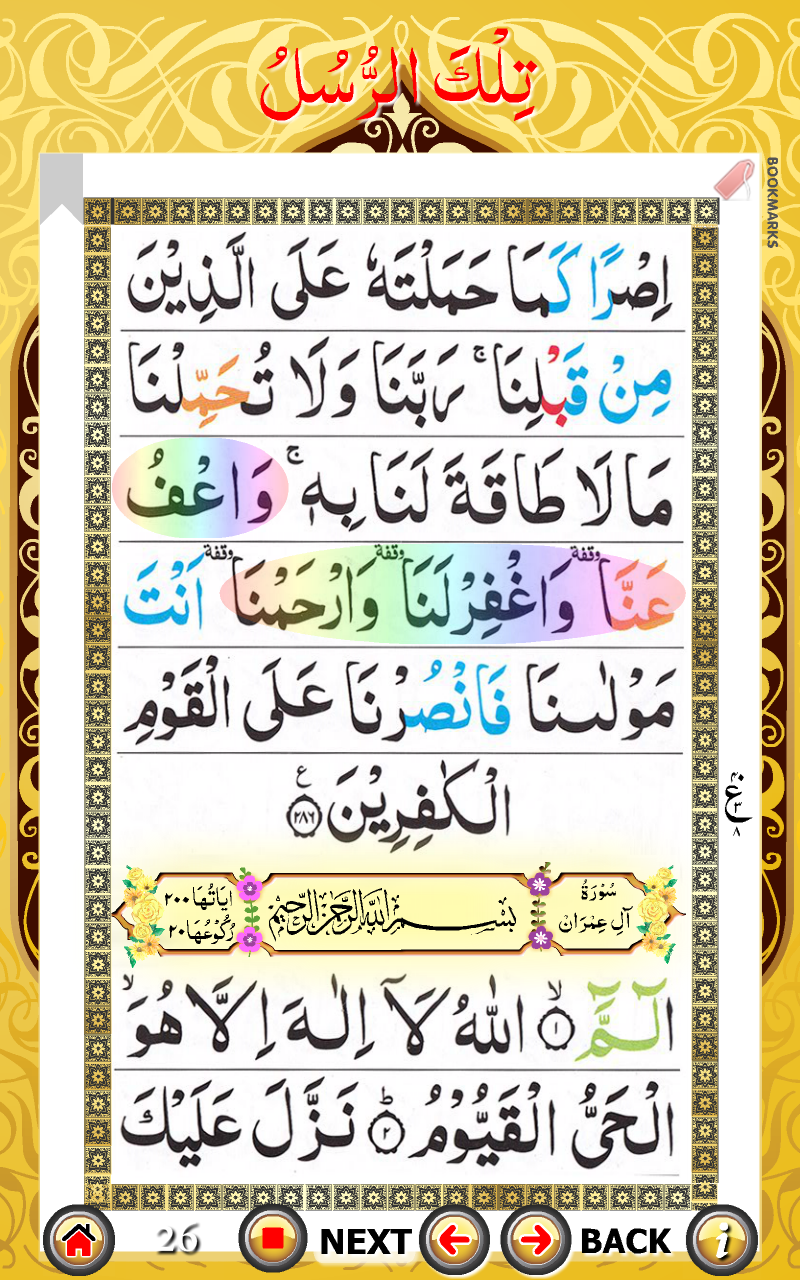 تِلْكَ الرُّسُلُ
BOOKMARKS
اِصْرًا كَمَا حَمَلْتَهٗ عَلَى الَّذِيْنَ
مِنْ قَبْلِنَا ۚ رَبَّنَا وَلَا تُحَمِّلْنَا
مَا لَا طَاقَةَ لَنَا بِهٖ ۚ وَاعْفُ
عَنَّا وقفة وَاغْفِرْ لَنَا وقفة وَارْحَمْنَا وقفة اَنْتَ
مَوْلٰىنَا فَانْصُرْنَا عَلَى الْقَوْمِ
الْكٰفِرِيْنَ ع ﴿۲۸۶﴾
۴۰ ع ۳ ۸
سُوْرَةُ
آلِ عِمْرَانْ
بِسْمِ اللّٰهِ الرَّحْمٰنِ الرَّحِيْمِ
اٰيَاتُهَا ۲۰۰
رُكُوْعُهَا ۲۰
الٓمّٓ ﴿۱﴾ ۙ اللّٰهُ لَآ اِلٰهَ اِلَّا هُوَ ۙ
الْحَىُّ الْقَيُّوْمُ ﴿۲﴾ ؕ نَزَّلَ عَلَيْكَ
26 NEXT BACK i